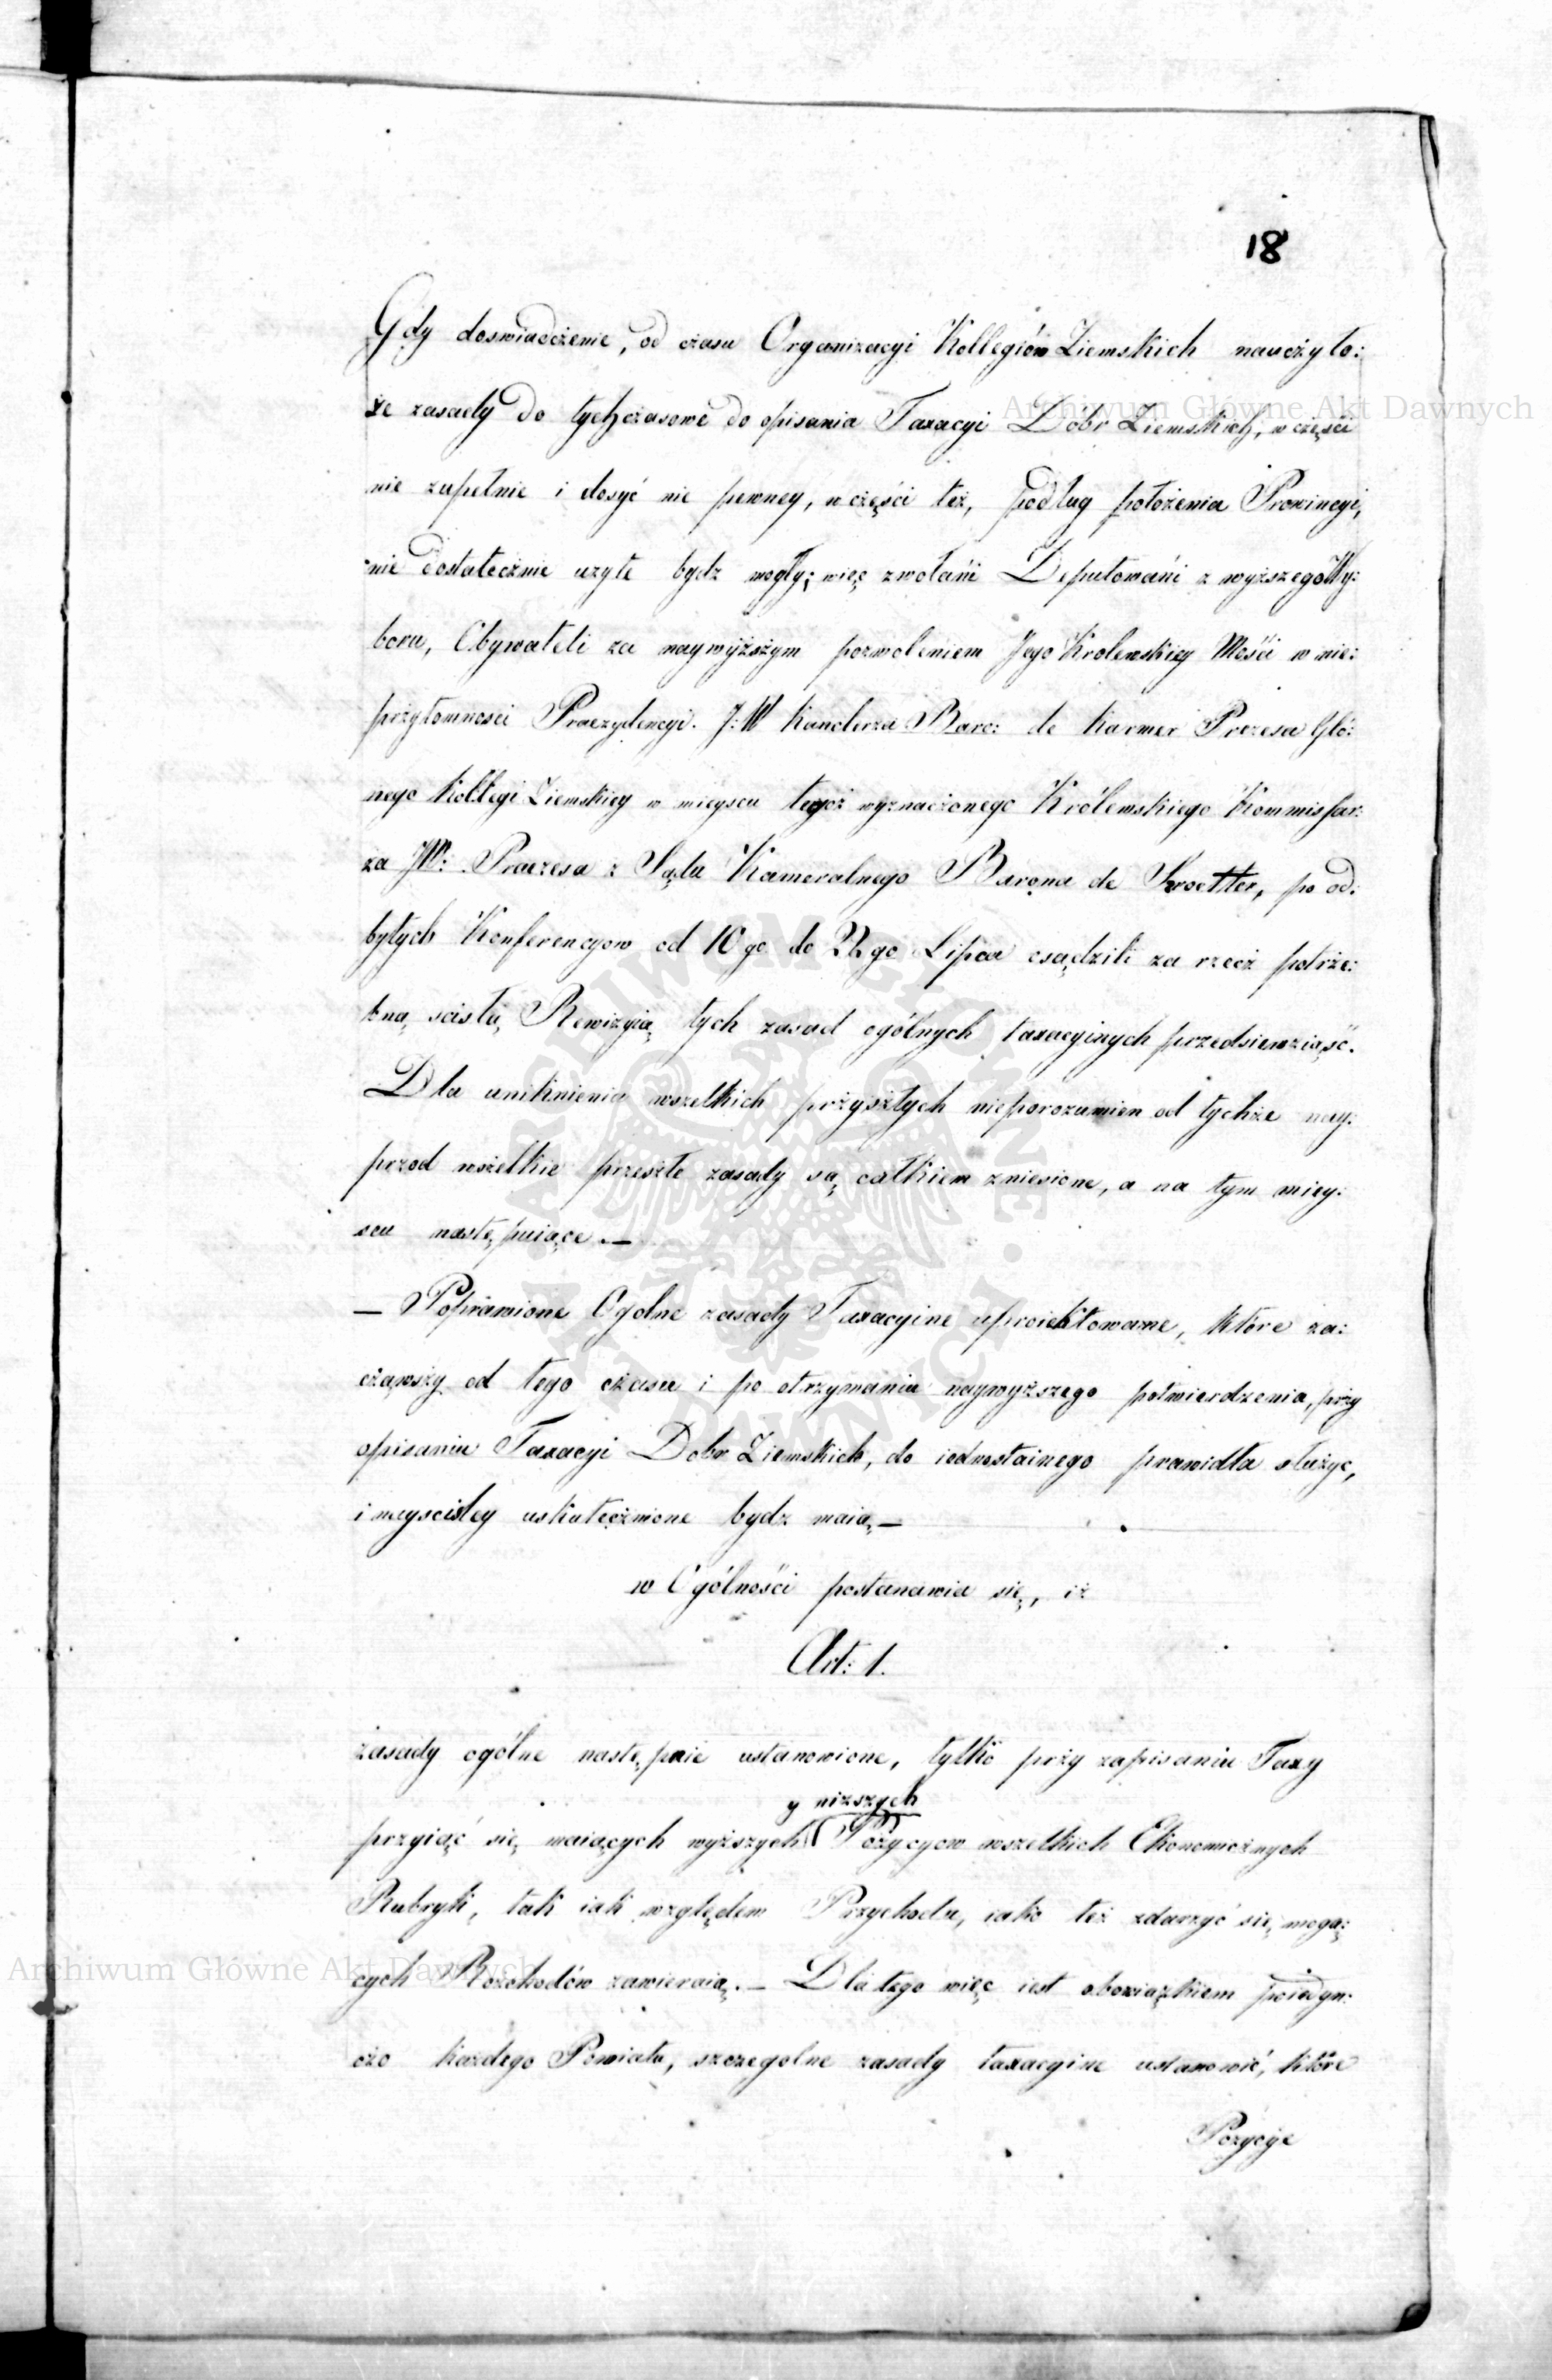 18
Gdy doswiadczenie, od czasu Organizacyi Kollegiów Ziemskich nauczyło:
że zasady do tychczasowe do opisania Taxacyi Dobr Ziemskich, w częsci
nie zupełnie i dosyć nie pewney, w części też, podług położenia Prowincyi,
nie dostatecznie uzyte bydz mogły; więc zwołani Deputowani z wyższego Wy:
boru, Obywateli za naywyższym pozwoleniem Jego Krolewskiey Mości w nie:
przytomnosci Praezydencyi. J:W Kanclerza Baro: de Karmer Prezesa Głó:
nego Kollegi Ziemskiey w mieyscu tegoż wyznaczonego Królewskiego Kommissar:
za JW: Praezesa z Sądu Kameralnego Barona de Sroetter, po od:
bytych Konferencyow od 10go do 22go Lipca osądzili za rzecz potrze:
bną scisłą Rewizyią tych zasad ogólnych taxacyinych przedsiewziąść.
Dla uniknienia wszelkich przyszłych nieporozumien od tychze nay:
przod wszelkie przeszłe zasady są całkiem zniesione, a na tym miey:
scu następuiące.—
— Poprawione Ogolne zasady Taxacyine uproiektowane, które za:
cząwszy od tego czasu i po otrzymaniu naywyższego potwierdzenia, przy
opisaniu Taxacyi Dobr Ziemskich, do iednostainego prawidła służyc,
i nayscisley uskutecznione bydz maią.—
w Ogólności postanawia się, iż
Art: 1.
zasady ogólne następnie ustanowione, tylko przy zapisaniu Taxy
y nizszych
przyiąć się maiących wyższych Pozycyow wszelkich Ekonomicznych
Rubryk, tak iak względem Przychodu, iako też zdarzyć się mogą:
cych Rozchodów zawieraią.— Dla tego więc iest obowiązkiem poiedyn:
czo każdego Powiatu, szczegolne zasady taxacyine ustanowić, które
Pozycye
Archiwum Główne Akt Dawnych
Archiwum Główne Akt Dawnych
ARCHIWUM GŁÓWNE AKT DAWNYCH